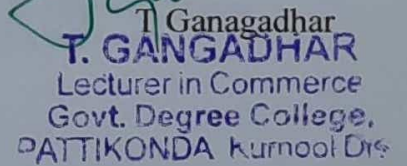 T Ganagadhar
T. GANGADHAR
Lecturer in Commerce
Govt. Degree College,
PATTIKONDA Kurnool Dis